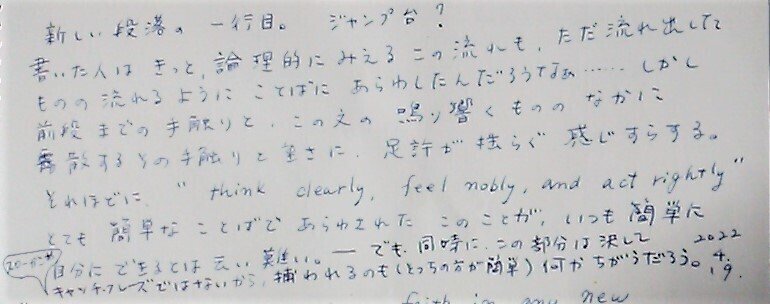 新しい段落の 一行目。 ジャンプ台?
書いた人は きっと、論理的に みえる この 流れも、ただ 流れ出してて
ものの 流れる ように ことばに あらわしたんだろうなぁ…… しかし
前段 までの 手触りと、この文の 鳴り響く ものの なかに
霧散する その 手触りと 重さに、足許が 揺らぐ 感じすらする。
それほどに、"think clearly, feel nobly, and act rightly"
とても 簡単な ことばで あらわされた このことが、いつも 簡単に
自分に できるとは 云い 難い。― でも、同時に、この部分は 決して
キャッチ・フレーズではないから、捕われるのも(そっちの方が簡単)何かちがうだろう。
2022
4.
19.
faith in any new